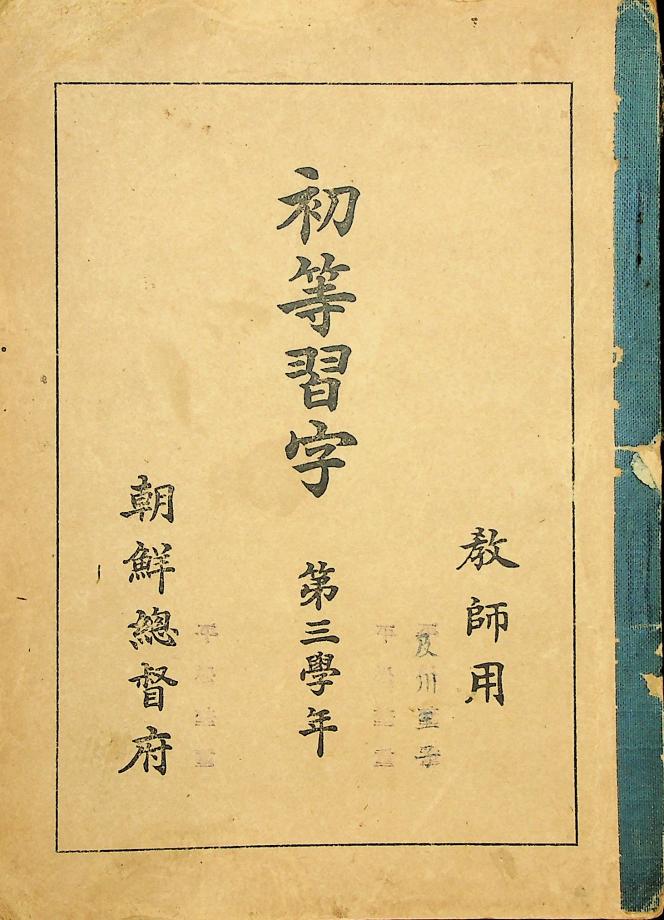 教師用
初等習字 第三學年
朝鮮總督府